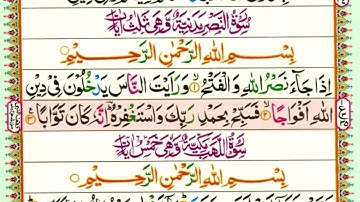 سُوْرَةُ النَّصْرِ مَدَنِيَّةٌ وَّهِيَ ثَلٰثُ اٰيَاتٍ
بِسْمِ اللهِ الرَّحْمٰنِ الرَّحِيْمِ
اِذَا جَآءَ نَصْرُ اللهِ وَالْفَتْحُ ۙ﴿۱﴾ وَرَاَيْتَ النَّاسَ يَدْخُلُوْنَ فِيْ دِيْنِ
اللهِ اَفْوَاجًا ۙ﴿۲﴾ فَسَبِّحْ بِحَمْدِ رَبِّكَ وَاسْتَغْفِرْهُ ؔؕ اِنَّهٗ كَانَ تَوَّابًا ﴿۳﴾
سُوْرَةُ اللَّهَبِ مَكِّيَّةٌ وَّهِيَ خَمْسُ اٰيَاتٍ
بِسْمِ اللهِ الرَّحْمٰنِ الرَّحِيْمِ